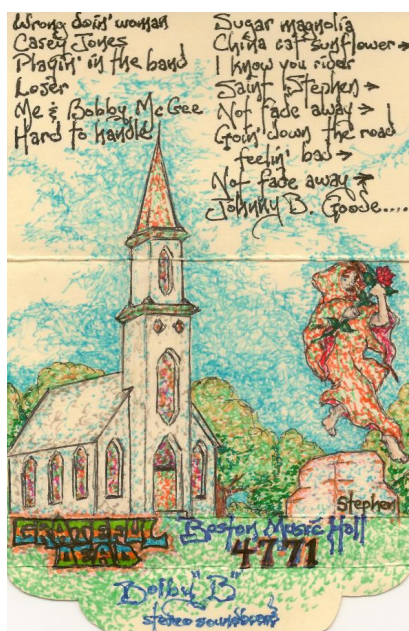 Wrong doin' woman
Casey Jones
Playin' in the band
Loser
Me & Bobby McGee
Hard to handle
Sugar magnolia
China cat sunflower →
I know you rider
Saint Stephen →
Not fade away →
Goin' down the road
feelin' bad →
Not fade away →
Johnny B. Goode....
Stephen
GRATEFUL
DEAD
Boston Music Hall
4771
Dolby "B"
stereo soundboard